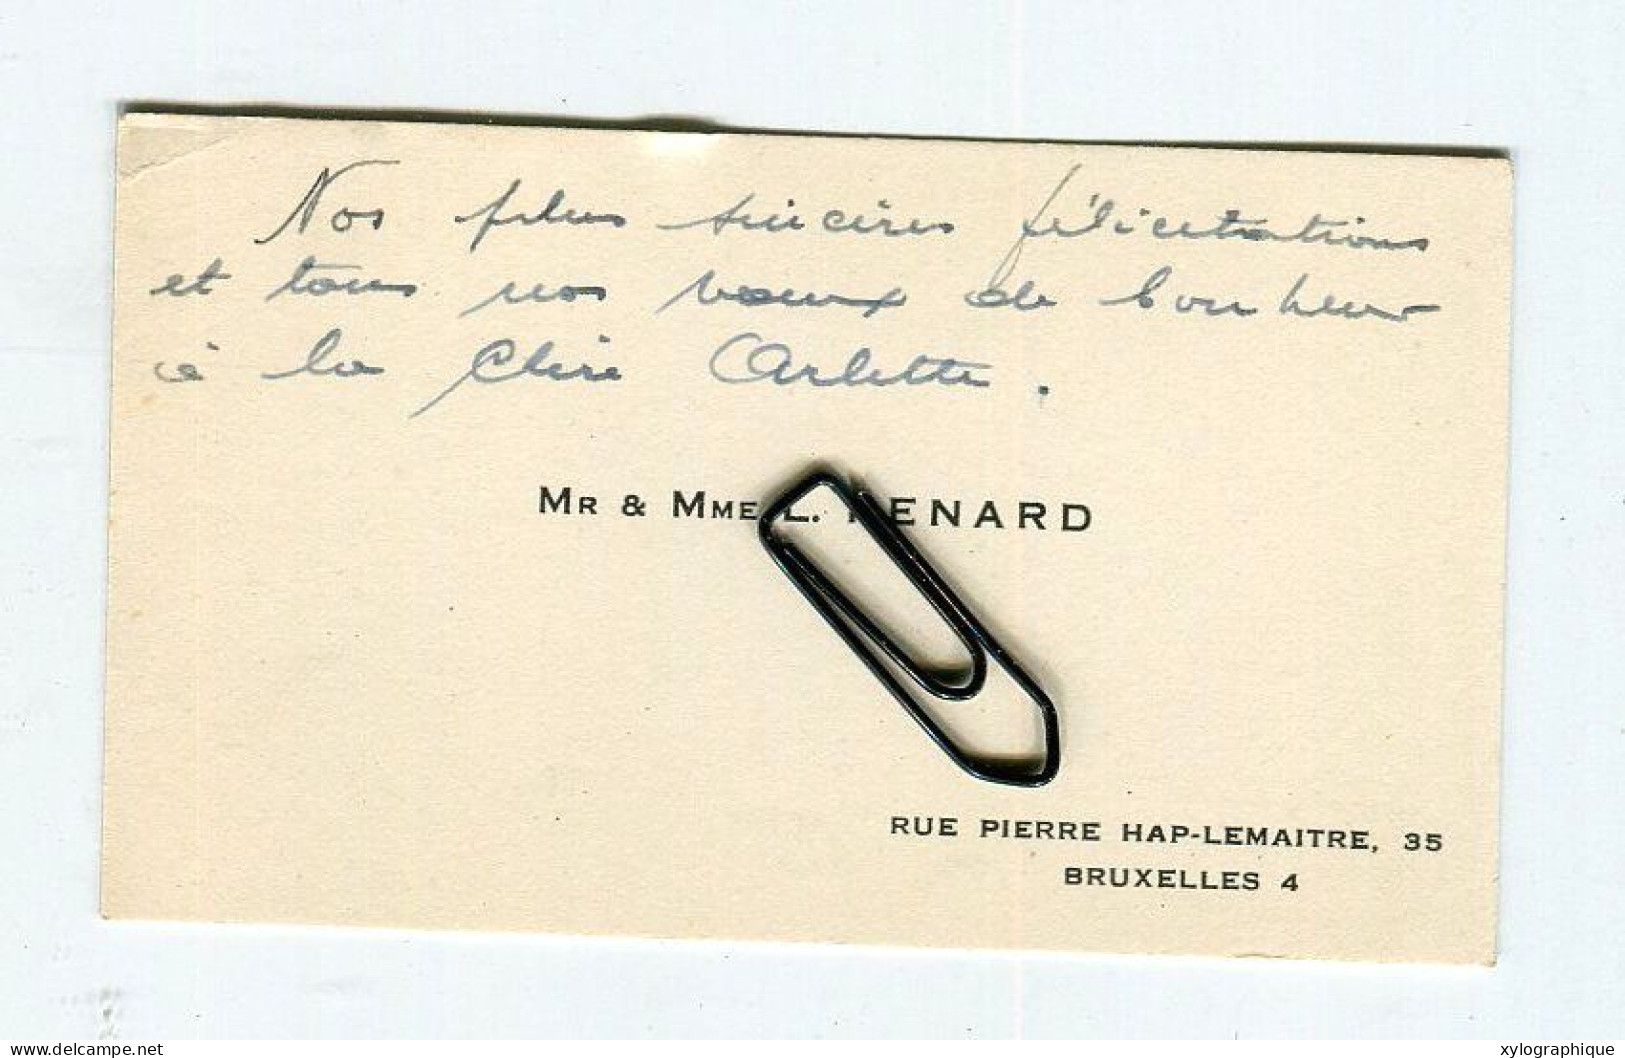 Nos plus sincères félicitations
et tous nos vœux de bonheur
à la chère Arlette.
MR & MME L. RENARD
RUE PIERRE HAP-LEMAITRE, 35
BRUXELLES 4
delcampe.net
xylographique